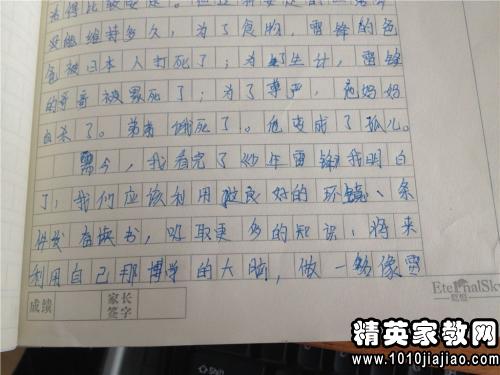 没能维持多久,为了食物,雷锋的爸
爸被日本人打死了;为了生计,雷锋
的哥哥被累死了;为了尊严,他妈妈
自杀了。弟弟饿死了。他变成了孤儿。
今,我看完了《少年雷锋》我明白
了,我们应该利用良好的环境、条
件发奋读书,吸取更多的知识,将来
利用自己那博学的大脑,做一名像雷
成绩
家长
签字
EternalSky
精英家教网
www.1010jiajiao.com